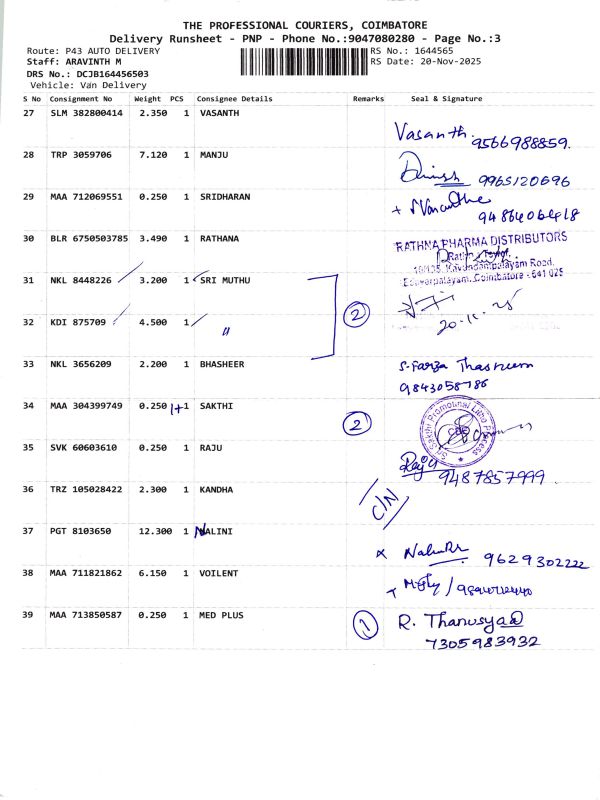 THE PROFESSIONAL COURIERS, COIMBATORE
Delivery Runsheet - PNP - Phone No.:9047080280 - Page No.:3
Route: P43 AUTO DELIVERY
RS No.: 1644565
Staff: ARAVINTH M
RS Date: 20-Nov-2025
DRS No.: DCJB164456503
Vehicle: Van Delivery
S No Consignment No Weight PCS Consignee Details Remarks Seal & Signature
27 SLM 382800414 2.350 1 VASANTH
Vasanth. 9566988859.
28 TRP 3059706 7.120 1 MANJU
9965120696
29 MAA 712069551 0.250 1 SRIDHARAN
9486406418
30 BLR 6750503785 3.490 1 RATHANA
RATHNA PHARMA DISTRIBUTORS
Coimbatore - 641 025
31 NKL 8448226 3.200 1 SRI MUTHU
2
20-11-25
32 KDI 875709 4.500 1 "
33 NKL 3656209 2.200 1 BHASHEER
S. Farza Thasneem
9843058786
34 MAA 304399749 0.250 1+1 SAKTHI
2
35 SVK 60603610 0.250 1 RAJU
Raju
9487857999.
36 TRZ 105028422 2.300 1 KANDHA
C/N
37 PGT 8103650 12.300 1 NALINI
9629302222
38 MAA 711821862 6.150 1 VOILENT
39 MAA 713850587 0.250 1 MED PLUS
1
R. Thanusyaa
7305983932